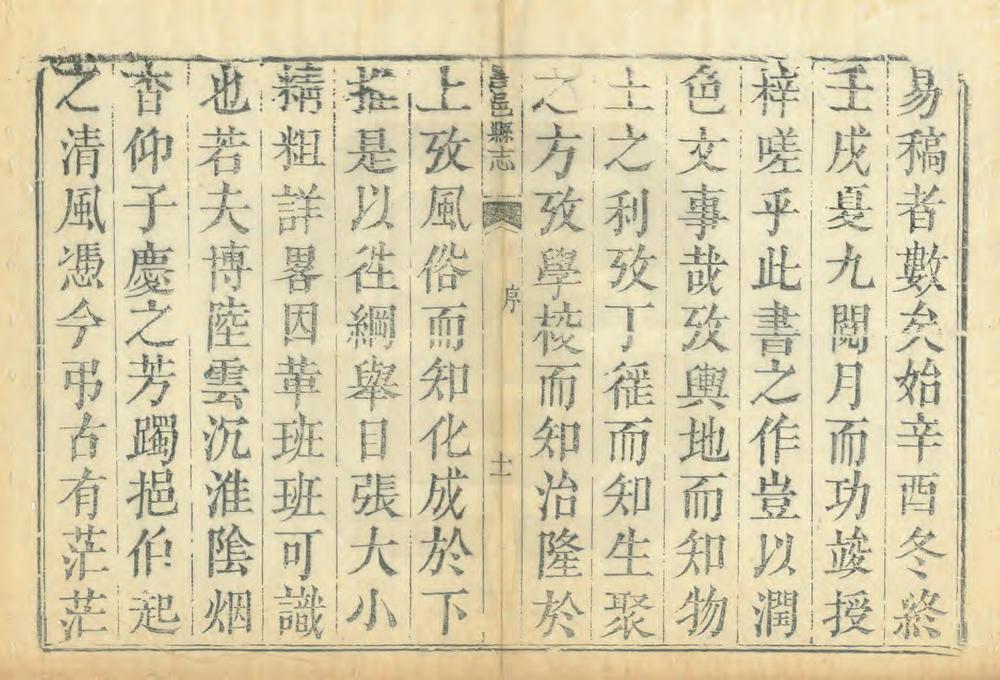 易稿者數矣始辛酉冬終
壬戌夏九閱月而功竣授
梓嗟乎此書之作豈以潤
色文事哉攷輿地而知物
土之利攷丁徭而知生聚
之方攷學校而知治隆於
昌邑縣志
序
十一
上攷風俗而知化成於下
推是以徃綱舉目張大小
精粗詳畧因革班班可識
也若夫博陸雲沉淮陰烟
杳仰子慶之芳躅挹伯起
之清風憑今弔古有茫茫